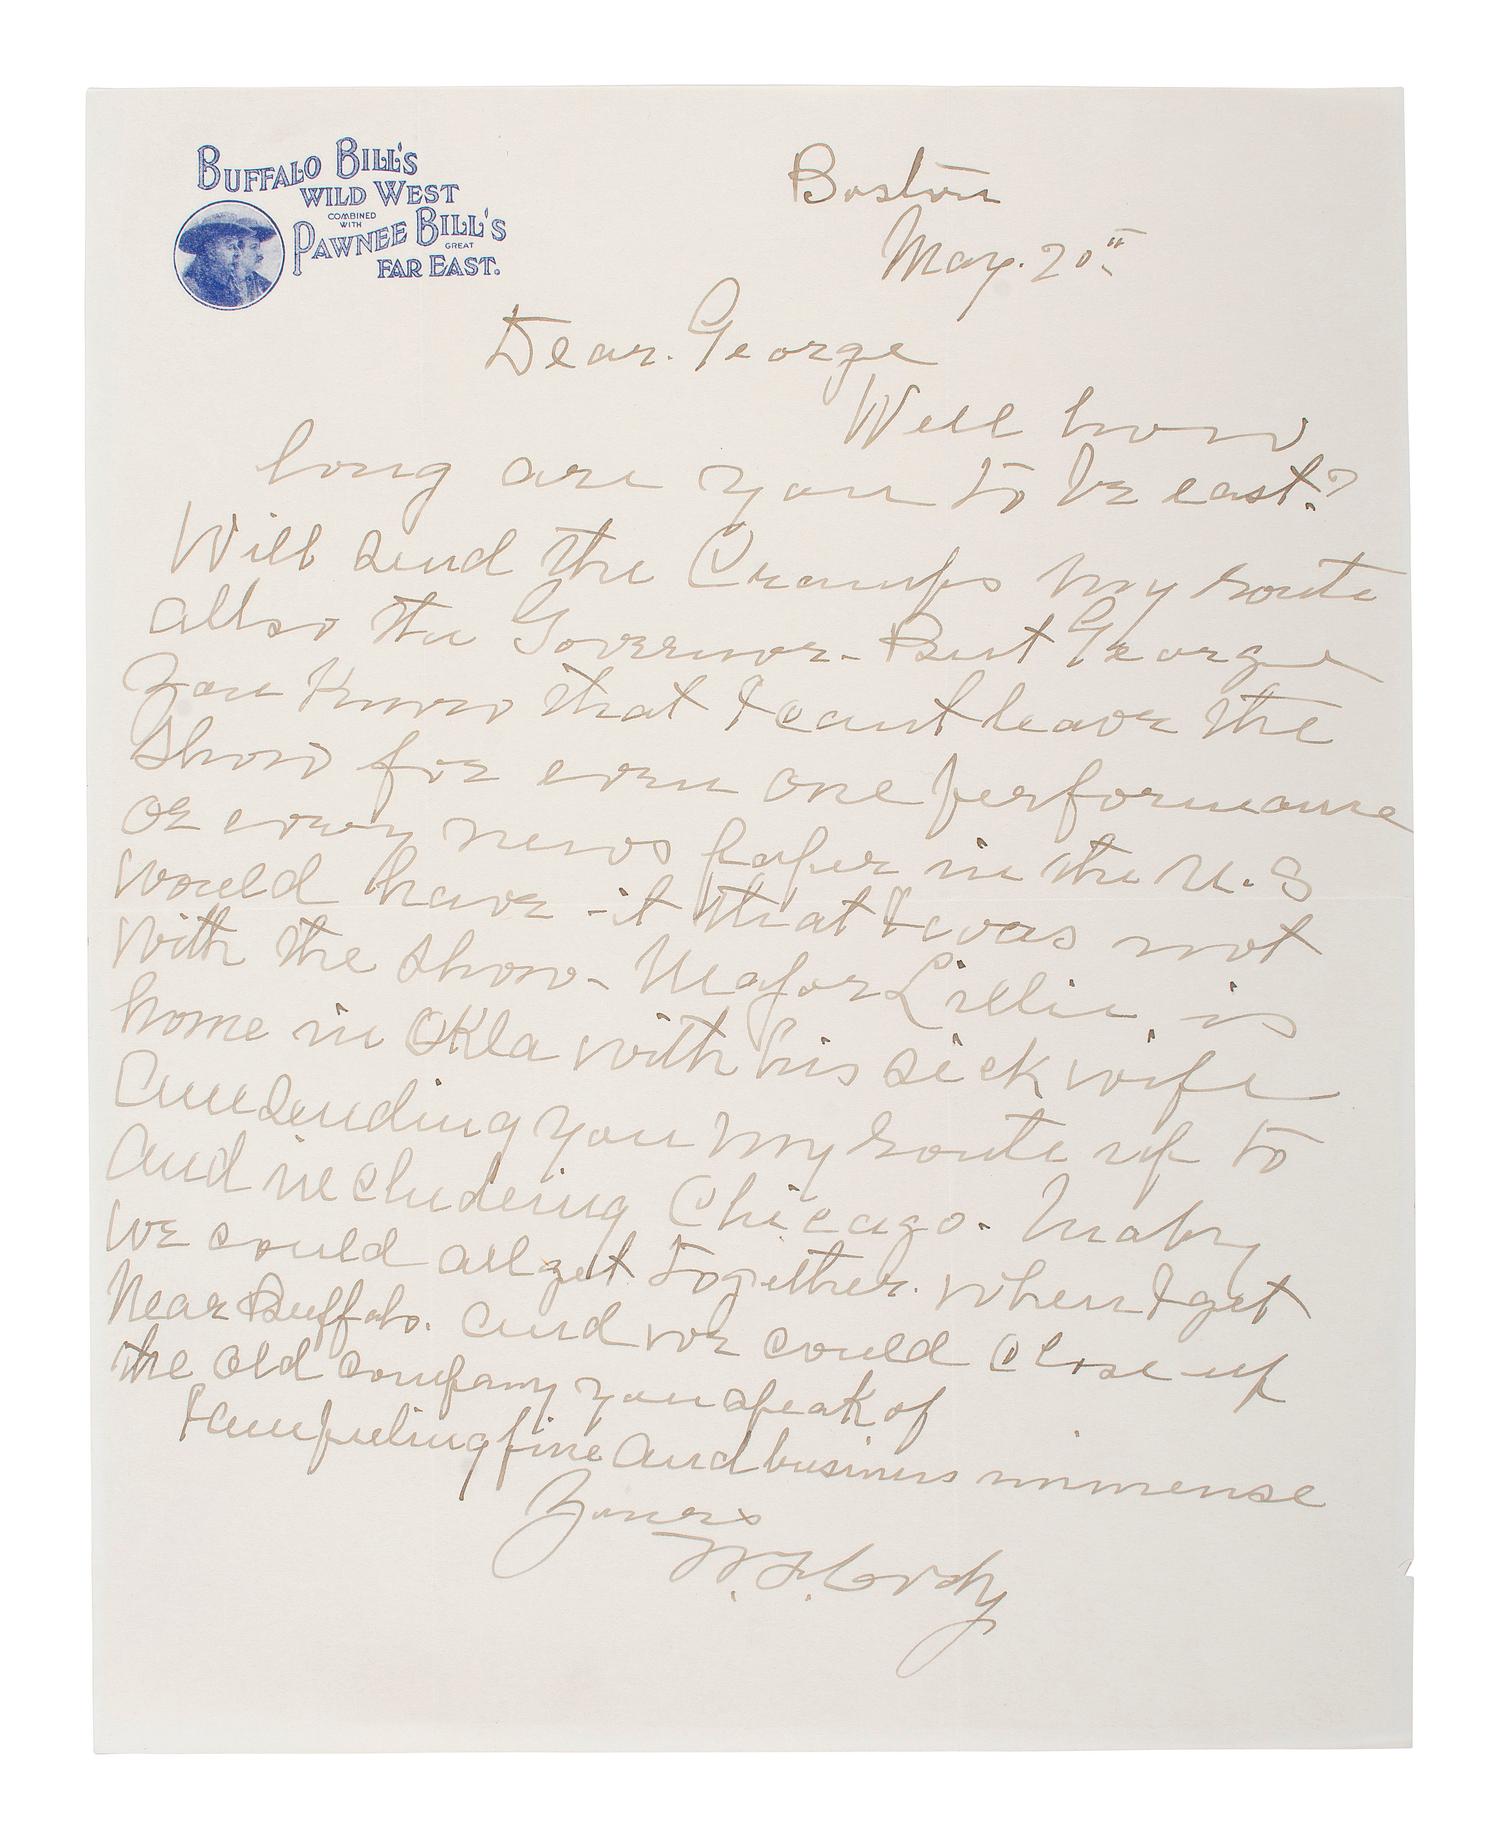 BUFFALO BILL'S
WILD WEST
COMBINED
WITH
PAWNEE BILL'S
GREAT
FAR EAST.
Boston
May. 20th
Dear. George
Well how
long are you to be east?
Will send the Cramps my route
allso the Governor- But George
you know that I cant leave the
show for even one performance
or every news paper in the U.S
would have it that I was not
with the show- Major Lillie is
home in Okla with his sick wife
Am sending you my route up to
and includeing Chicago. Maby
we could all get together. when I get
near Buffalo. and we could close up
the old company you speak of
I am feeling fine and business immense
Yours
W. F. Cody